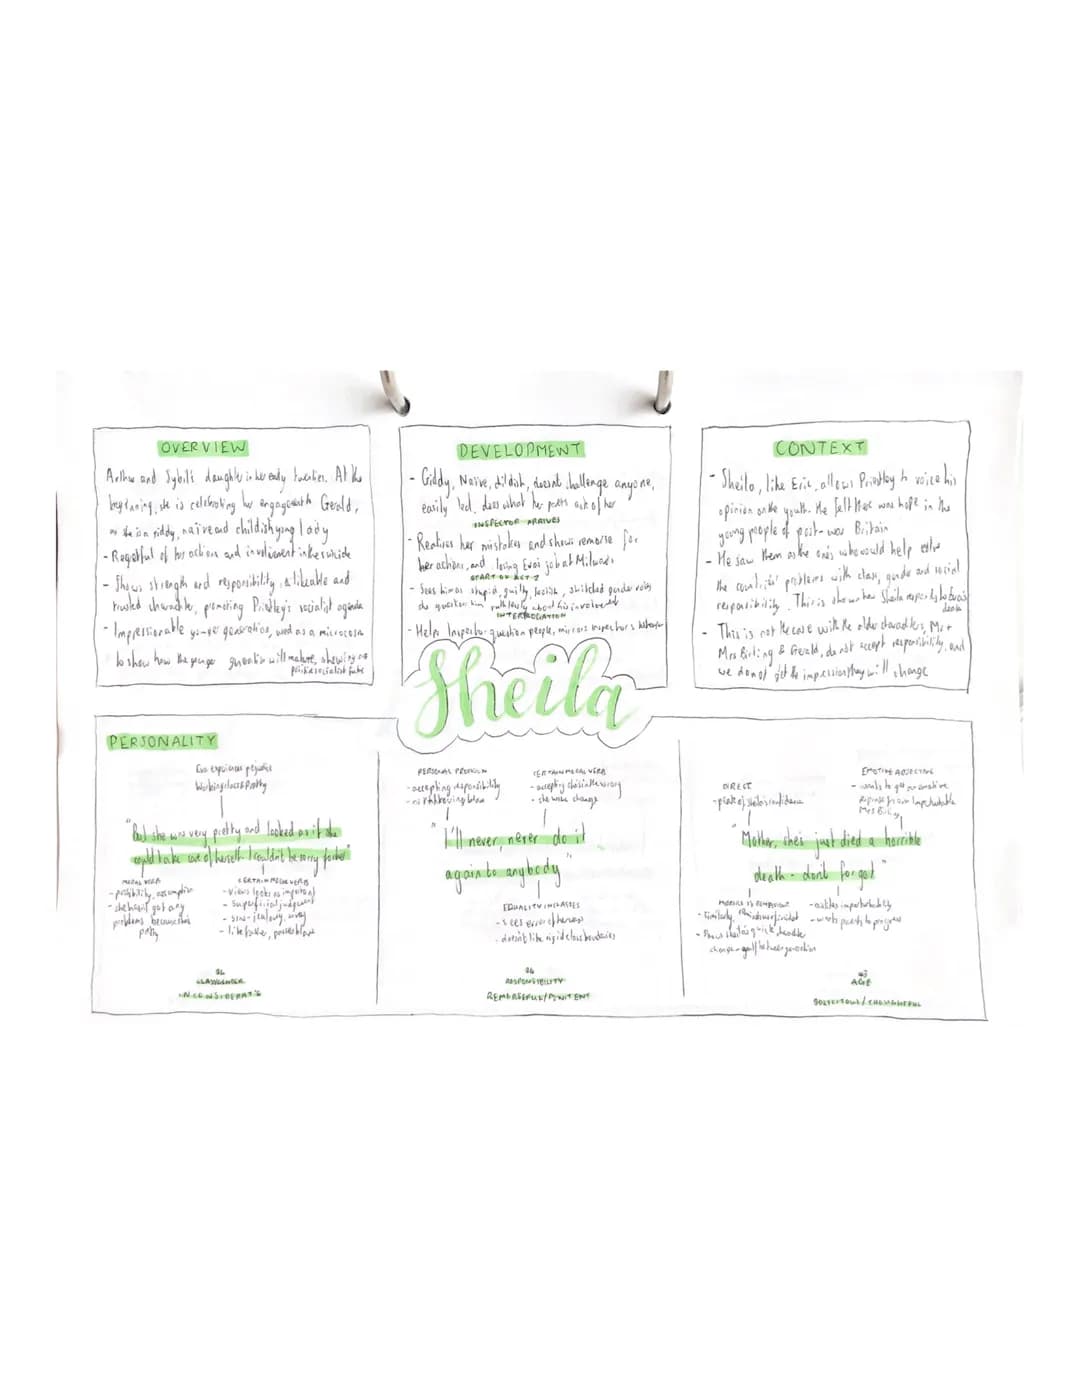 OVERVIEW
Arthur and Sybil's daughter in her early twenties. At the
beginning, she is celebrating her engagement to Gerald,
she is a giddy, naïve and childish young lady
- Regretful of her actions and involvement in the suicide
- Shows strength and responsibility, a likeable and
trusted character, promoting Priestley's socialist agenda
- Impressionable younger generation, used as a microcosm
to show how the younger generation will mature, showing
socialist
DEVELOPMENT
- Giddy, Naïve, childish, doesn't challenge anyone,
easily led, does what her parents ask of her
INSPECTOR ARRIVES
- Realises her mistakes and shows remorse for
her actions, and losing Eva's job at Milwards
START OF ACT 2
- Sees him as stupid, guilty, foolish, switched gender roles
she questions him ruthlessly about his involvement
INTERROGATION
- Helps Inspector question people, mirrors inspector's behaviour
CONTEXT
- Sheila, like Eric, allows Priestley to voice his
opinion on the youth. He felt there was hope in the
young people of post-war Britain
- He saw them as the ones who would help solve
the countries' problems with class, gender and social
responsibility. This is shown how Sheila responds to Eva's
death
- This is not the case with the older characters, Mr +
Mrs Birling & Gerald, do not accept responsibility, and
we do not get the impression they will change
Sheila
PERSONALITY
Eva experiences prejudice
Working class & Pretty
"But she was very pretty and looked as if she
could take care of herself. I couldn't be sorry for her"
MODAL VERB
- possibility, assumption
- she hasn't got any
problems because she's
pretty
CERTAIN MODAL VERB
- views looks as important
- superficial judgement
- sins - jealousy, envy
- like father, passes blame
CLASS/GENDER
INCONSIDERATE
PERSONAL PRONOUN
- accepting responsibility
- not throwing blame
CERTAIN MODAL VERB
- accepting she's in the wrong
- she will change
"I'll never, never do it
again to anybody"
EQUALITY INCREASES
- sees error of her ways
- doesn't like rigid class boundaries
RESPONSIBILITY
REMORSEFUL/PENITENT
DIRECT
- peak of Sheila's confidence
EMOTIVE ADJECTIVE
- wants to get an emotive
response from imperturbable
Mrs Birling
"Mother, she's just died a horrible
death - don't forget."
- Shows Sheila's quick character
change - gulf between generation
- wants parents to progress
AGE